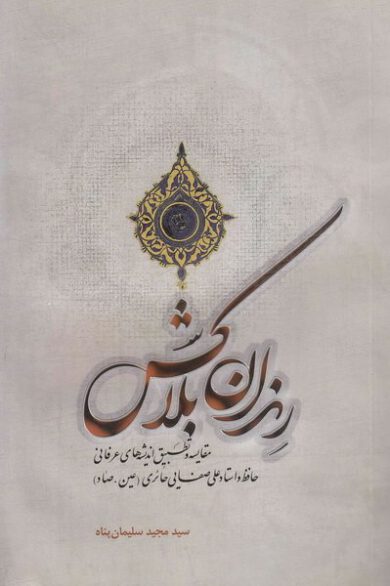 رندان بلاکش
مقایسه و تطبیق اندیشه‌های عرفانی
حافظ و استاد علی صفایی حائری (عین. صاد)
سید مجید سلیمان‌پناه